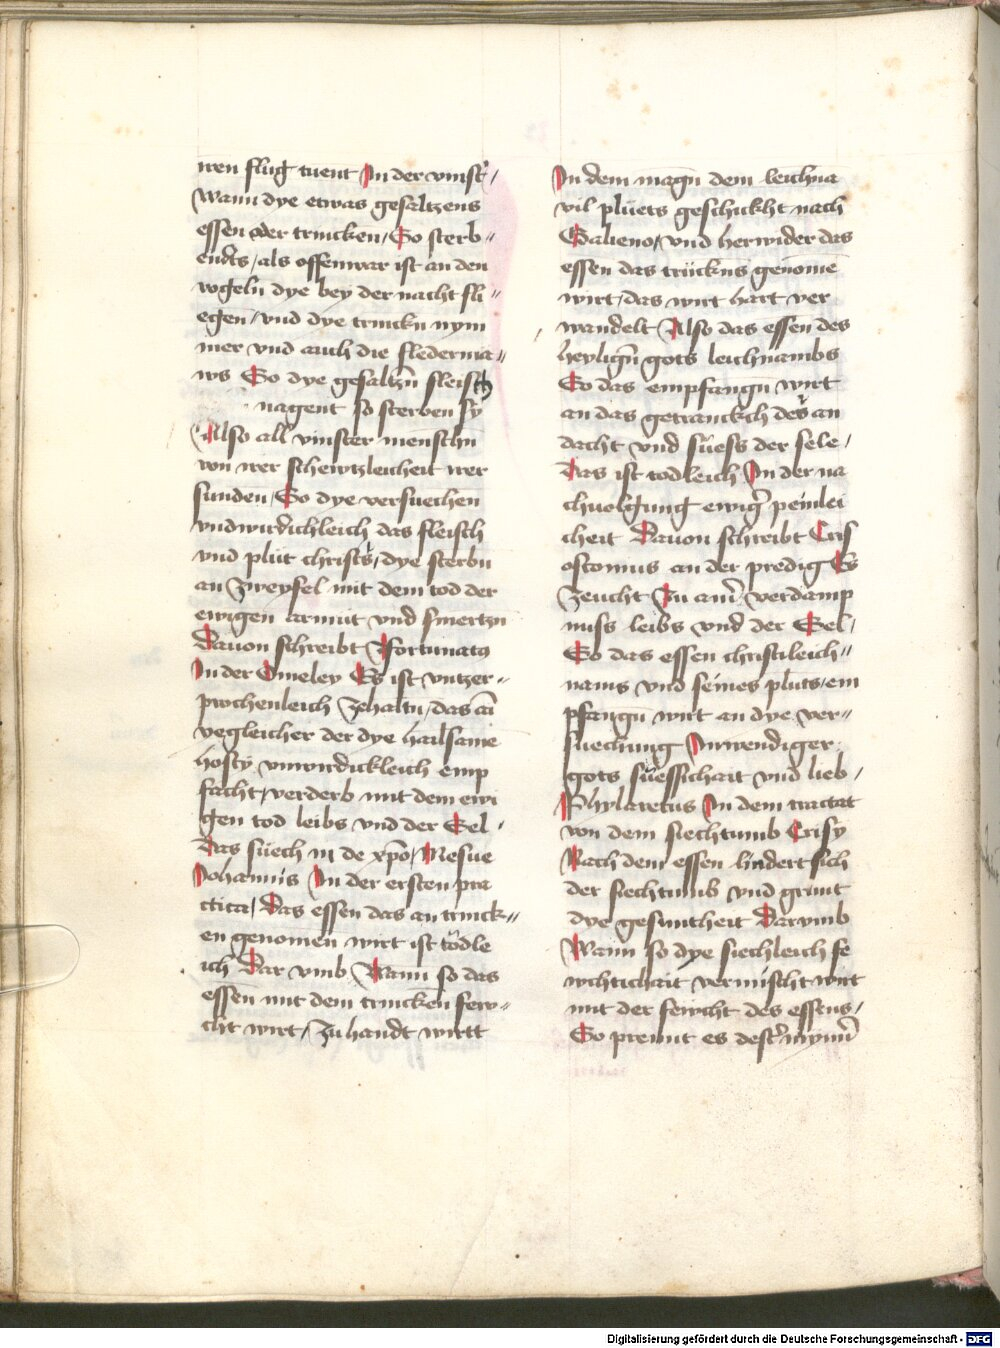 iren flug tuent In der vinst̄
Wann dye etwas gesaltzens
essen oder trincken / So sterb〃
ents / als offenwar ist an den
vogeln dye bey der nacht fli〃
egen / vnd dye trinckn nym
mer vnd auch die flederma〃
ws So dye gesaltzn̄ fleisch
nagent so sterben sy
Also all vinster menschn̄
von irer scheitzleicheit irer
sunden / So dye versuechen
vndwirdichleich das fleisch
vnd plüt christs / dye sterbn
an zweyfel mit dem tod der
ewigen armut vnd smertzn
Dauon schreibt Afortunatꝰ
In der Omeley Es ist vntzer〃
prochenleich zehaltn̄ / das ain
yegleicher der dye hailsame
hosty vnwirdickleich emp
facht / verderb mit dem ewi
gen tod leibs vnd der Sel /
Das süech in de xp̄o / Mesue
Johannis In der ersten pra
ctica / Das essen das an trinck〃
en genomen wirt ist tödle
ich Dar vmb / Wann so das
essen mit dem trincken few〃
cht wirt / zu handt wirtt
In dem magn̄ dem leichna
vil plüets geschickht nach
Galieno / vnd herwider das
essen das trückns genōme
wirt / das wirt hart ver
wandelt Also das essen des
heylign̄ gots leichnambs
So das empfangn̄ wirt
an das getranckch der an
dacht vnd süess der sele /
Das ist todleich In der na
chuolgung ewiḡ peinlei
cheit Dauon schreibt Cris
ostomus an der predig Es
zeucht Zu ainr̄ verdamp
nuss leibs vnd der Sel /
So das essen christileich〃
nams vnd seines pluts / em
pfangn̄ wirt an dye ver〃
suechung Inwendiger
gots süessichait vnd lieb /
Phylaretus In dem tractat
von dem siechtumb Crisy
Nach dem essen lindert sich
der siechtumb vnd grint
dye gesuntheit Darvmb
Wann so dye siechleich fe
wchtichait vermischt wirt
mit der fewcht des essens /
So prennt es dest̄ mynnr̄
Digitalisierung gefördert durch die Deutsche Forschungsgemeinschaft - DFG